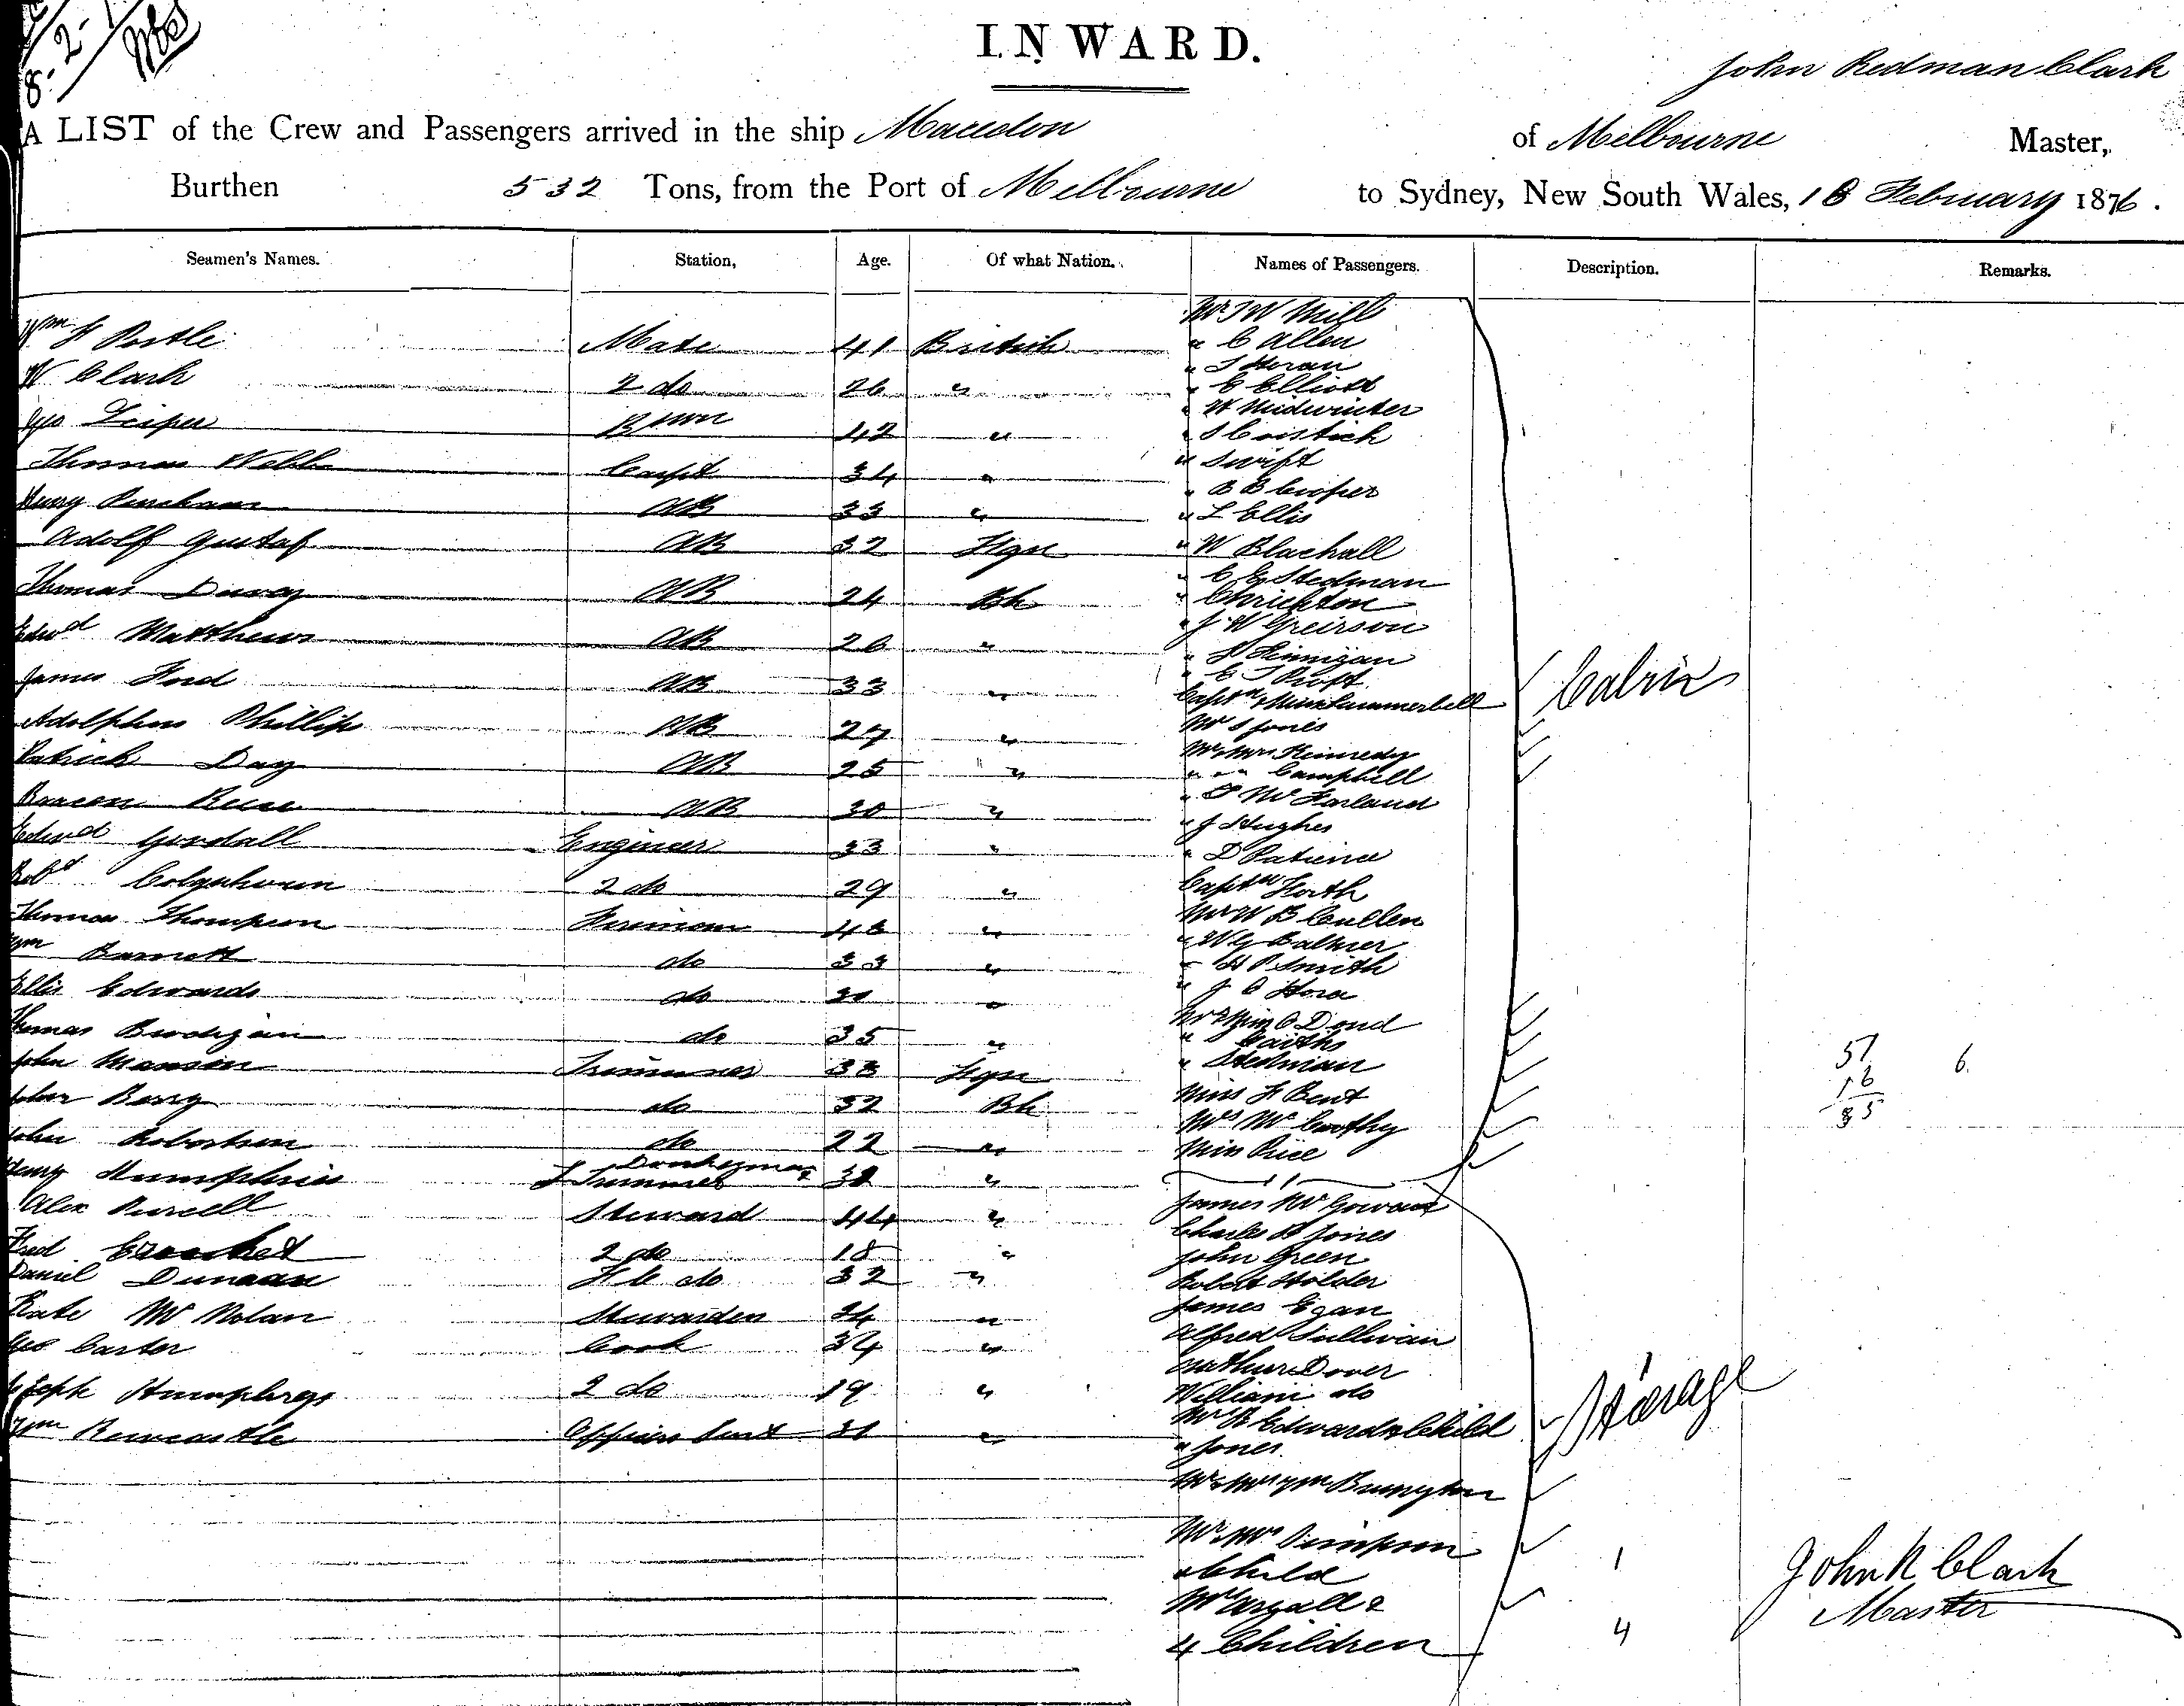 INWARD.
John Redman Clark
A LIST of the Crew and Passengers arrived in the ship Macedon of Melbourne Master,
Burthen 532 Tons, from the Port of Melbourne to Sydney, New South Wales, 18 February 1876.
Seamen's Names. Station, Age. Of what Nation. Names of Passengers. Description. Remarks.
Mr J W Mill
Wm H Postle Mate 41 British " C Allen
" J Horan
W Clark 2 do 26 " " E Elliott
" W Midwinter
Geo Leiper 42 " " S Cosstick
Thomas Webb Carpt 34 " " Swift
" B B Cooper
Henry AB 33 " " L Ellis
Adolf Gustaf AB 32 Fgn " W Blackall
" C E Stedman
Thomas AB 24 Bh " Chrichton
" J W Greirson
Edwd Matthews AB 26 " " Finnigan
James Ford AB 33 "
Captn & Miss Summerbell Cabin
Adolphus Phillips AB 27 " Mr S Jones
Mr & Mrs Kennedy
Patrick Day AB 25 " " " " Campbell
AB 30 " " McFarland
" J Hughes
Edwd Goodall Engineer 33 " " D Patience
Robt Colquhoun 2 do 29 " Captn Forth
Thomas Thompson Fireman 46 " Mr W B Cullen
" W G Balmer
Wm Barnett do 33 " " H P Smith
Ellis Edwards do " " J O Hora
Mrs & Miss O Doud
Thomas Brodigan do 35 " "
John Manson Trimmer 38 Fgn " Stedman 57 6.
Miss H Bent 16
John Berry do 32 Bh Mrs McCarthy 85
John Robertson do 22 " Miss Rice
Henry Humphries Donkeyman & Trimmer 38 "
Alex Purcell Steward 44 " James McGowan
Charles H Jones
Fred Crocket 2 do 18 " John Green
Daniel Duncan F C do 32 " Robert Holder
James Egan
Kate McNolan Stewardess 34 " Alfred Sullivan
Geo Carter Cook 34 " Arthur Dover
Joseph Humphreys 2 do 19 " William do
Mrs R Edwards & Child Steerage
Wm Newcastle Officers Servt 31 " " Jones
Mr & Mrs Wm Bumpton
Mr & Mrs Simpson
& Child 1
Mrs Argall &
4 Children 4
John R Clark
Master